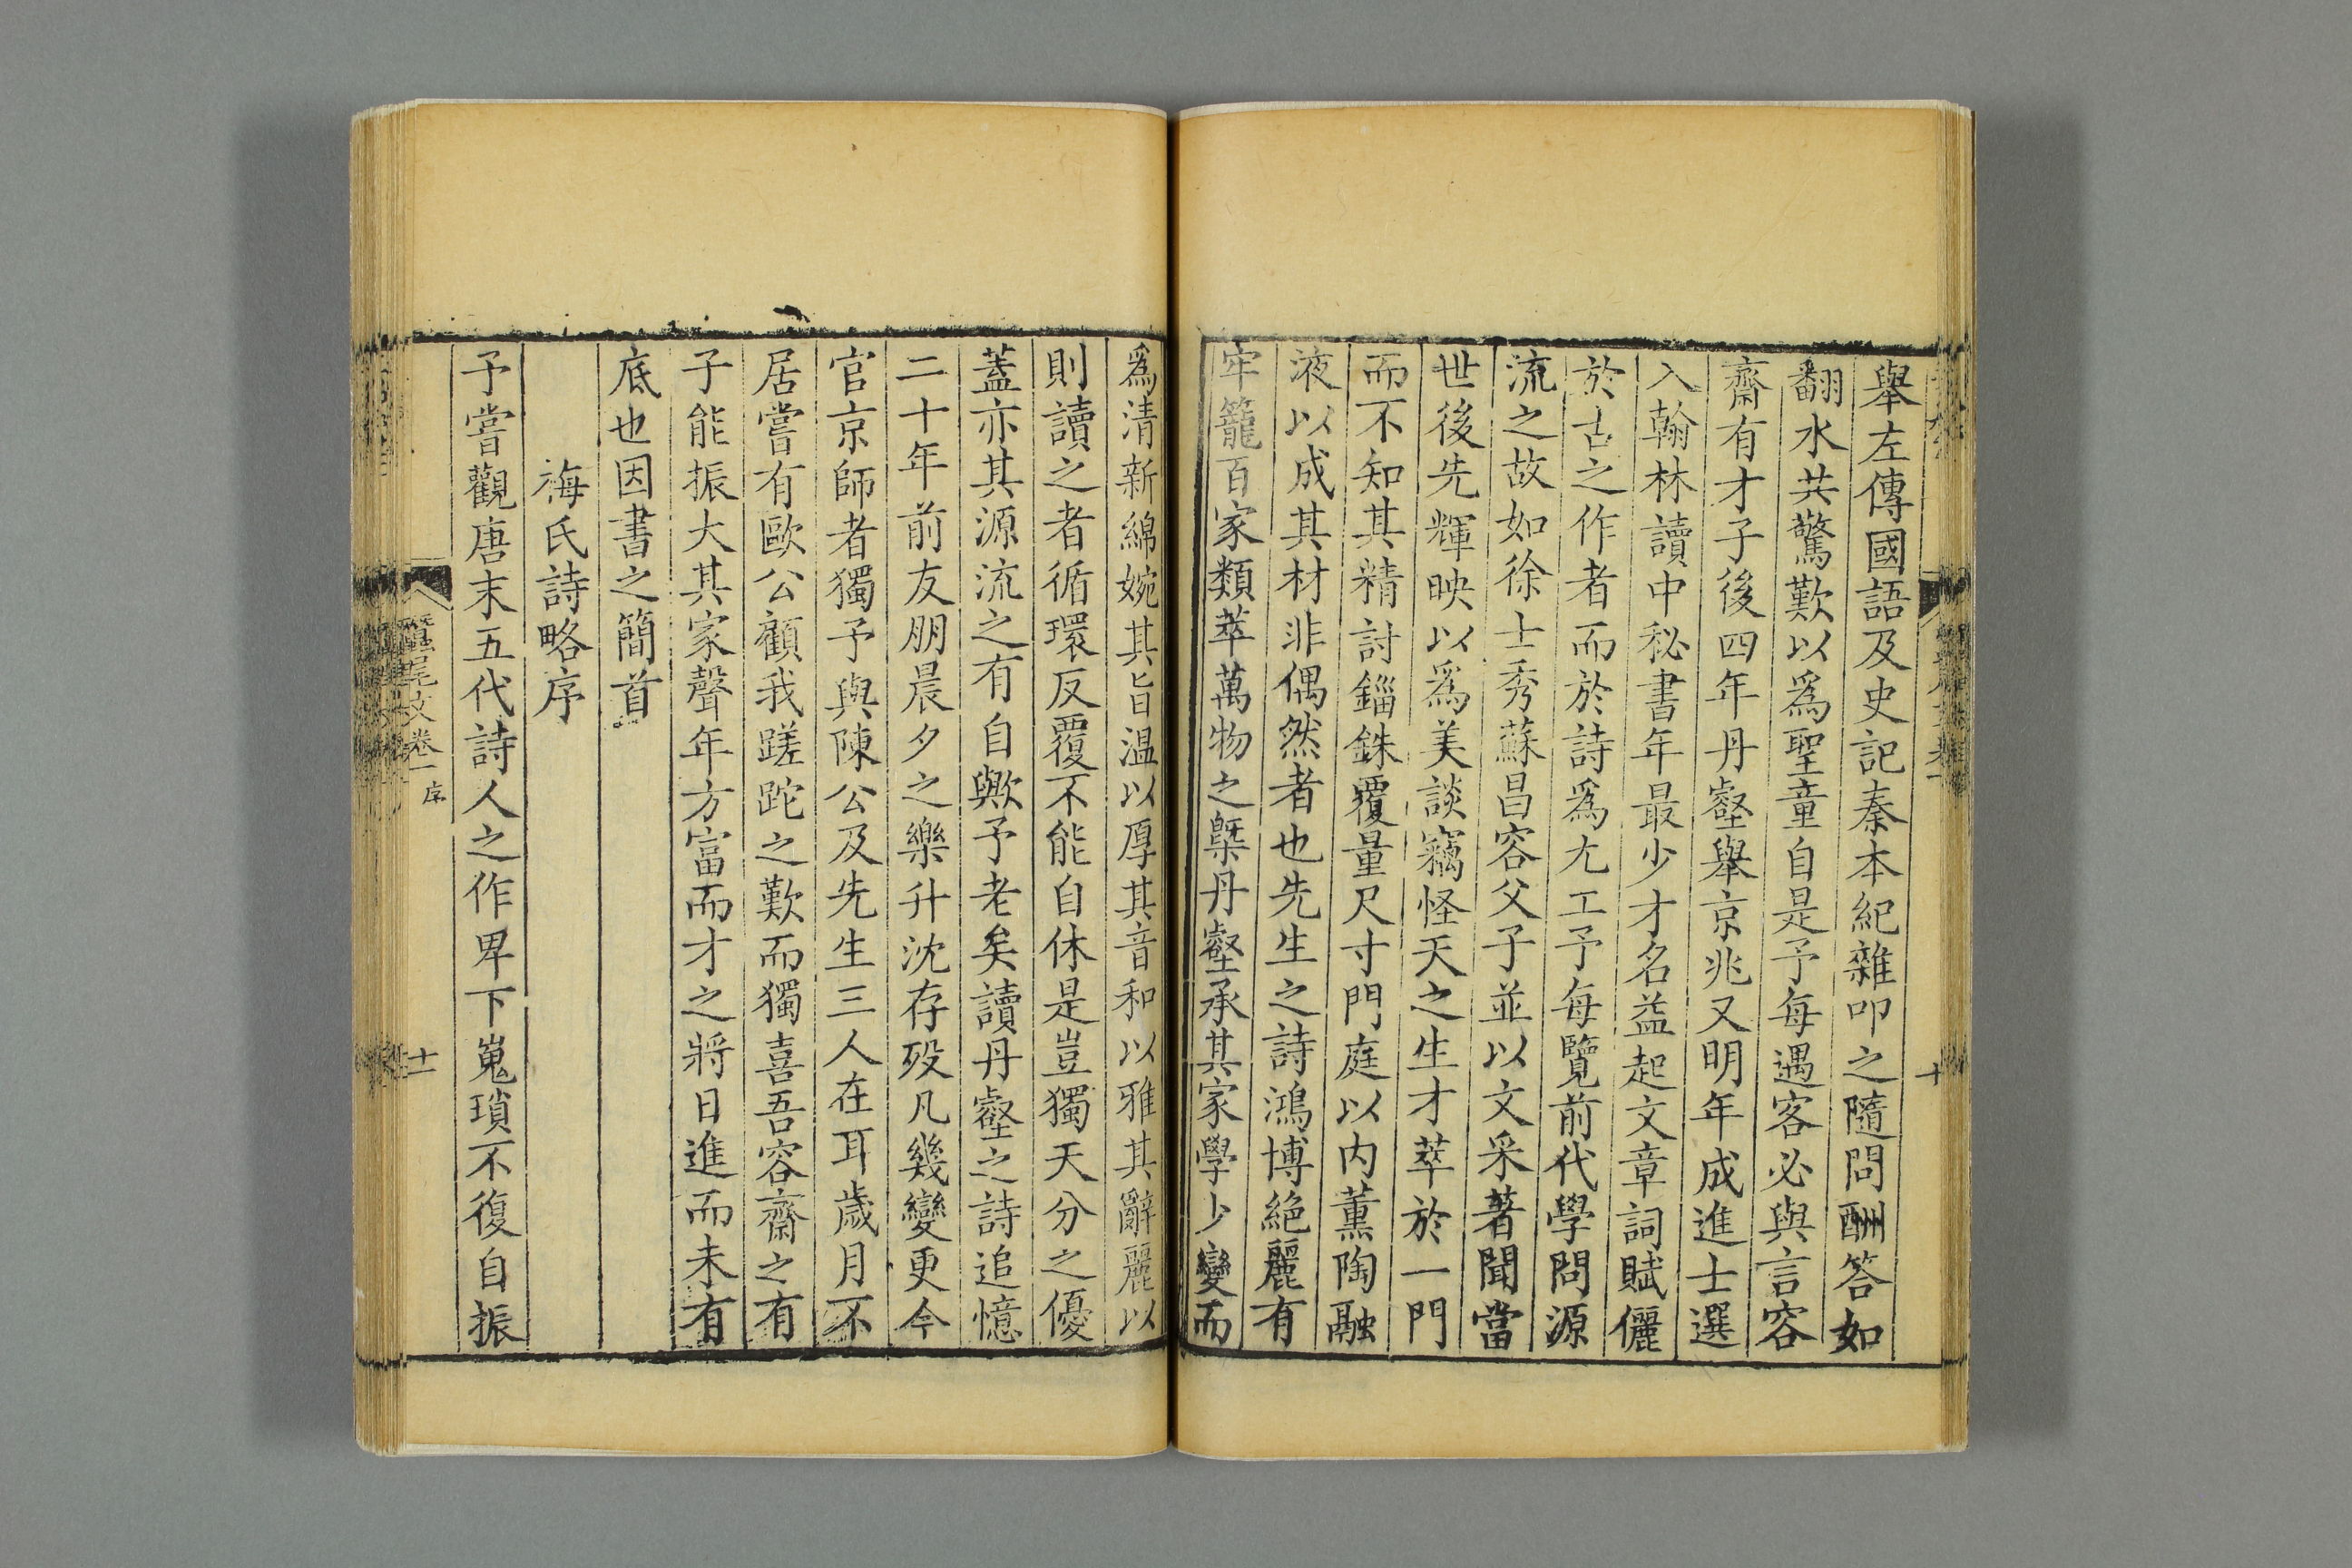 舉左傳國語及史記秦本紀雜叩之隨問酬答如
翻水共驚歎以爲聖童自是予每遇客必與言容
齋有才子後四年丹壑舉京兆又明年成進士選
入翰林讀中秘書年最少才名益起文章詞賦儷
於古之作者而於詩爲尤工予每覽前代學問源
流之故如徐士秀蘇昌容父子並以文采著聞當
世後先輝映以爲美談竊怪天之生才萃於一門
而不知其精討錙銖覆量尺寸門庭以内薰陶融
液以成其材非偶然者也先生之詩鴻博絶麗有
牢籠百家類萃萬物之槩丹壑承其家學少變而
爲清新綿婉其旨温以厚其音和以雅其辭麗以
則讀之者循環反覆不能自休是豈獨天分之優
蓋亦其源流之有自歟予老矣讀丹壑之詩追憶
二十年前友朋晨夕之樂升沈存殁凡幾變更今
官京師者獨予與陳公及先生三人在耳歲月不
居嘗有歐公顧我蹉跎之歎而獨喜吾容齋之有
子能振大其家聲年方富而才之將日進而未有
底也因書之簡首
梅氏詩略序
予嘗觀唐末五代詩人之作卑下嵬瑣不復自振
蠶尾文卷一 序
十一